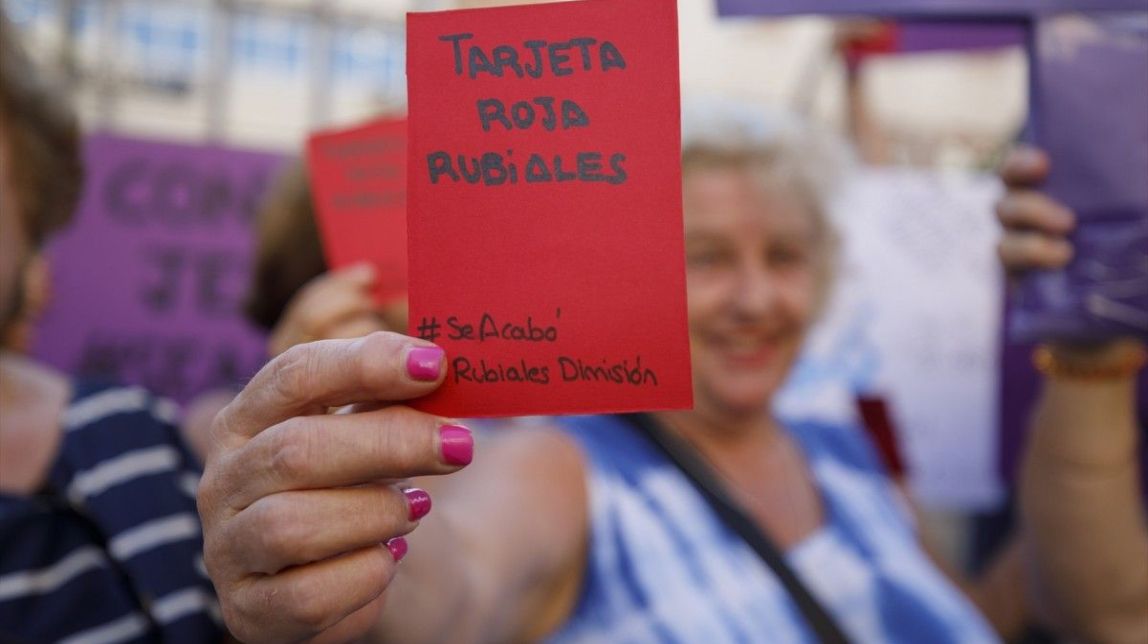 TARJETA
ROJA
RUBIALES
#SeAcabó
Rubiales Dimisión
CON
JE